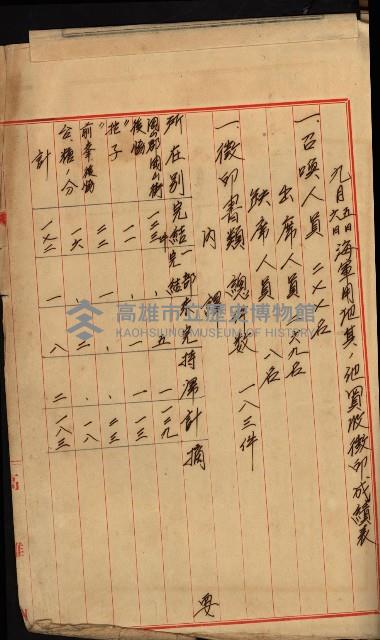 九月五日六日海軍用地其ノ他買收徵印成績表
一、召喚人員 二〤〤名
出席人員 〤六九名
缺席人員 八名
一、徵印書類總數 一八三件
內譯
所在別 完結 一部完結 未完 持歸 計 摘要
岡山郡岡山街 一二三件 一 五 一二九
後協 一一 一 一 一三
〃 挖子 二二 一 二三
前峯後協 一六 二 一八
會社ノ分
計 一八三
高雄市立歷史博物館
KAOHSIUNG MUSEUM OF HISTORY
高雄